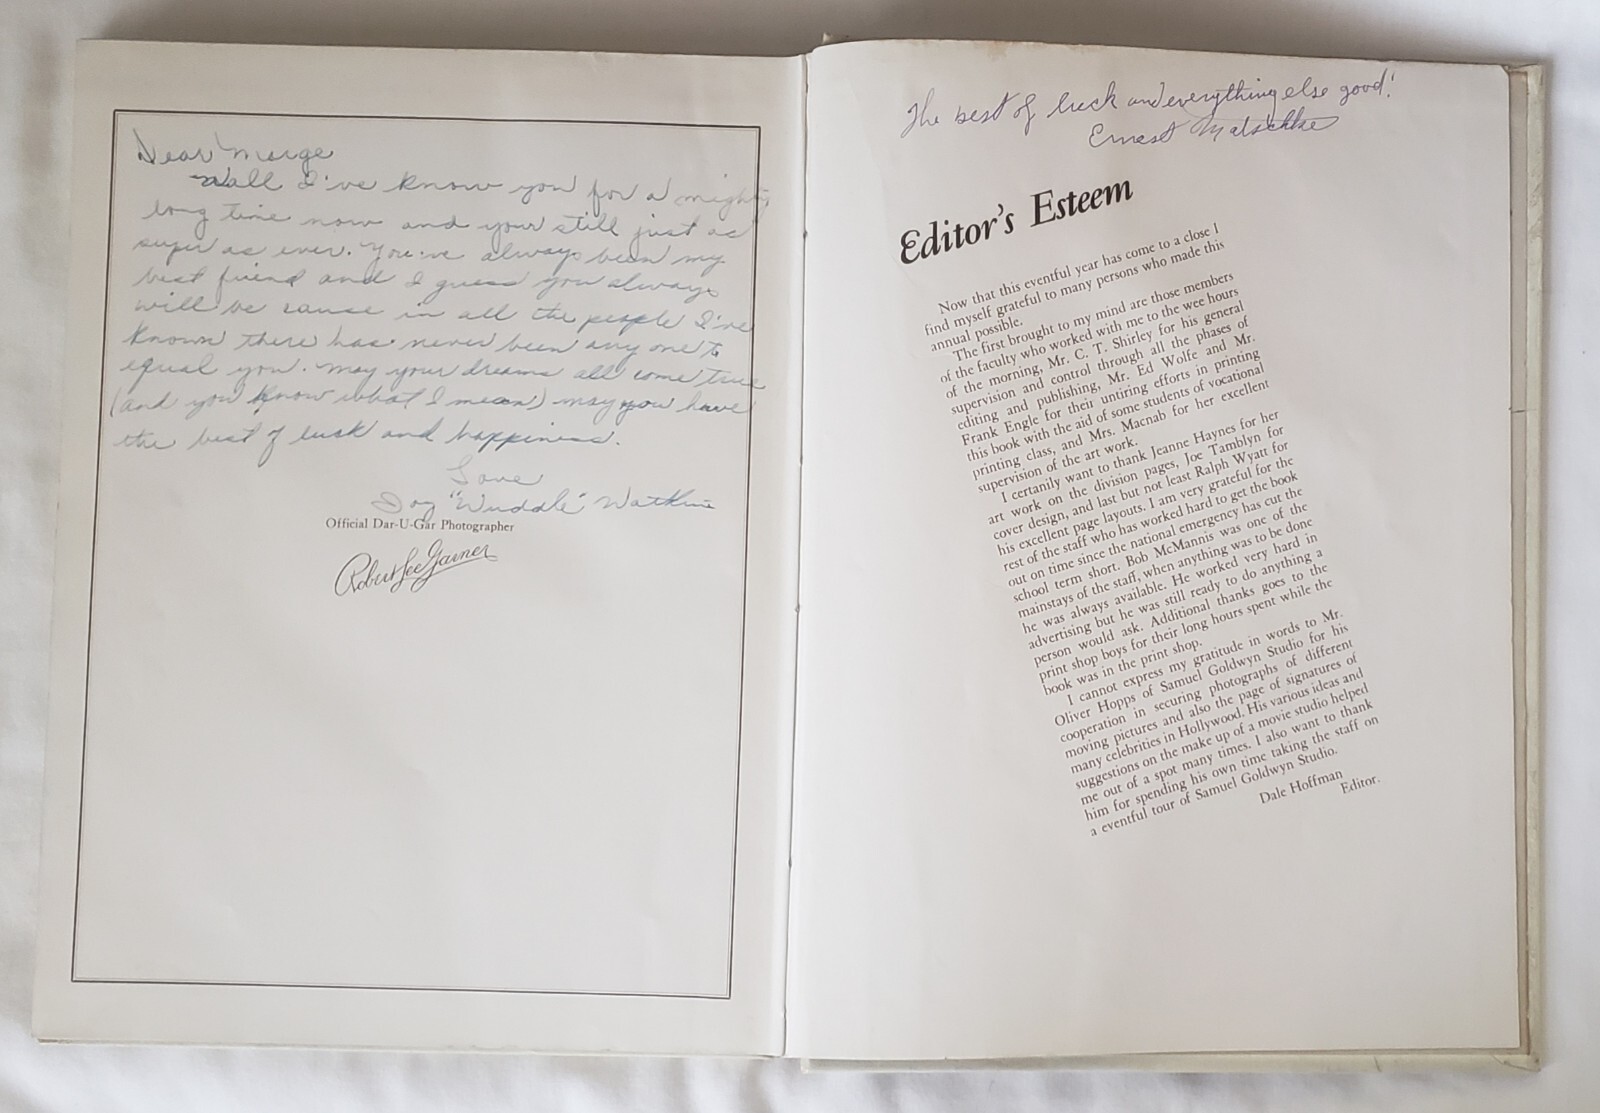 Dear Marge
Wall I've know you for a mighty
long time now and your still just as
super as ever. You've always been my
best friend and I guess you always
will be cause in all the people I've
known there has never been any one to
equal you. May your dreams all come true
(and you know what I mean) may you have
the best of luck and happiness.
Love
Joy "Wuddle" Watkins
Official Dar-U-Gar Photographer
Robert Lee Garner
The best of luck and everything else good!
Ernest Matschke
Editor's Esteem
Now that this eventful year has come to a close I
find myself grateful to many persons who made this
annual possible.
The first brought to my mind are those members
of the faculty who worked with me to the wee hours
of the morning, Mr. C. T. Shirley for his general
supervision and control through all the phases of
editing and publishing, Mr. Ed Wolfe and Mr.
Frank Engle for their untiring efforts in printing
this book with the aid of some students of vocational
printing class, and Mrs. Macnab for her excellent
supervision of the art work.
I certanily want to thank Jeanne Haynes for her
art work on the division pages, Joe Tamblyn for
cover design, and last but not least Ralph Wyatt for
his excellent page layouts. I am very grateful for the
rest of the staff who has worked hard to get the book
out on time since the national emergency has cut the
school term short. Bob McMannis was one of the
mainstays of the staff, when anything was to be done
he was always available. He worked very hard in
advertising but he was still ready to do anything a
person would ask. Additional thanks goes to the
print shop boys for their long hours spent while the
book was in the print shop.
I cannot express my gratitude in words to Mr.
Oliver Hopps of Samuel Goldwyn Studio for his
cooperation in securing photographs of different
moving pictures and also the page of signatures of
many celebrities in Hollywood. His various ideas and
suggestions on the make up of a movie studio helped
me out of a spot many times. I also want to thank
him for spending his own time taking the staff on
a eventful tour of Samuel Goldwyn Studio.
Dale Hoffman
Editor.